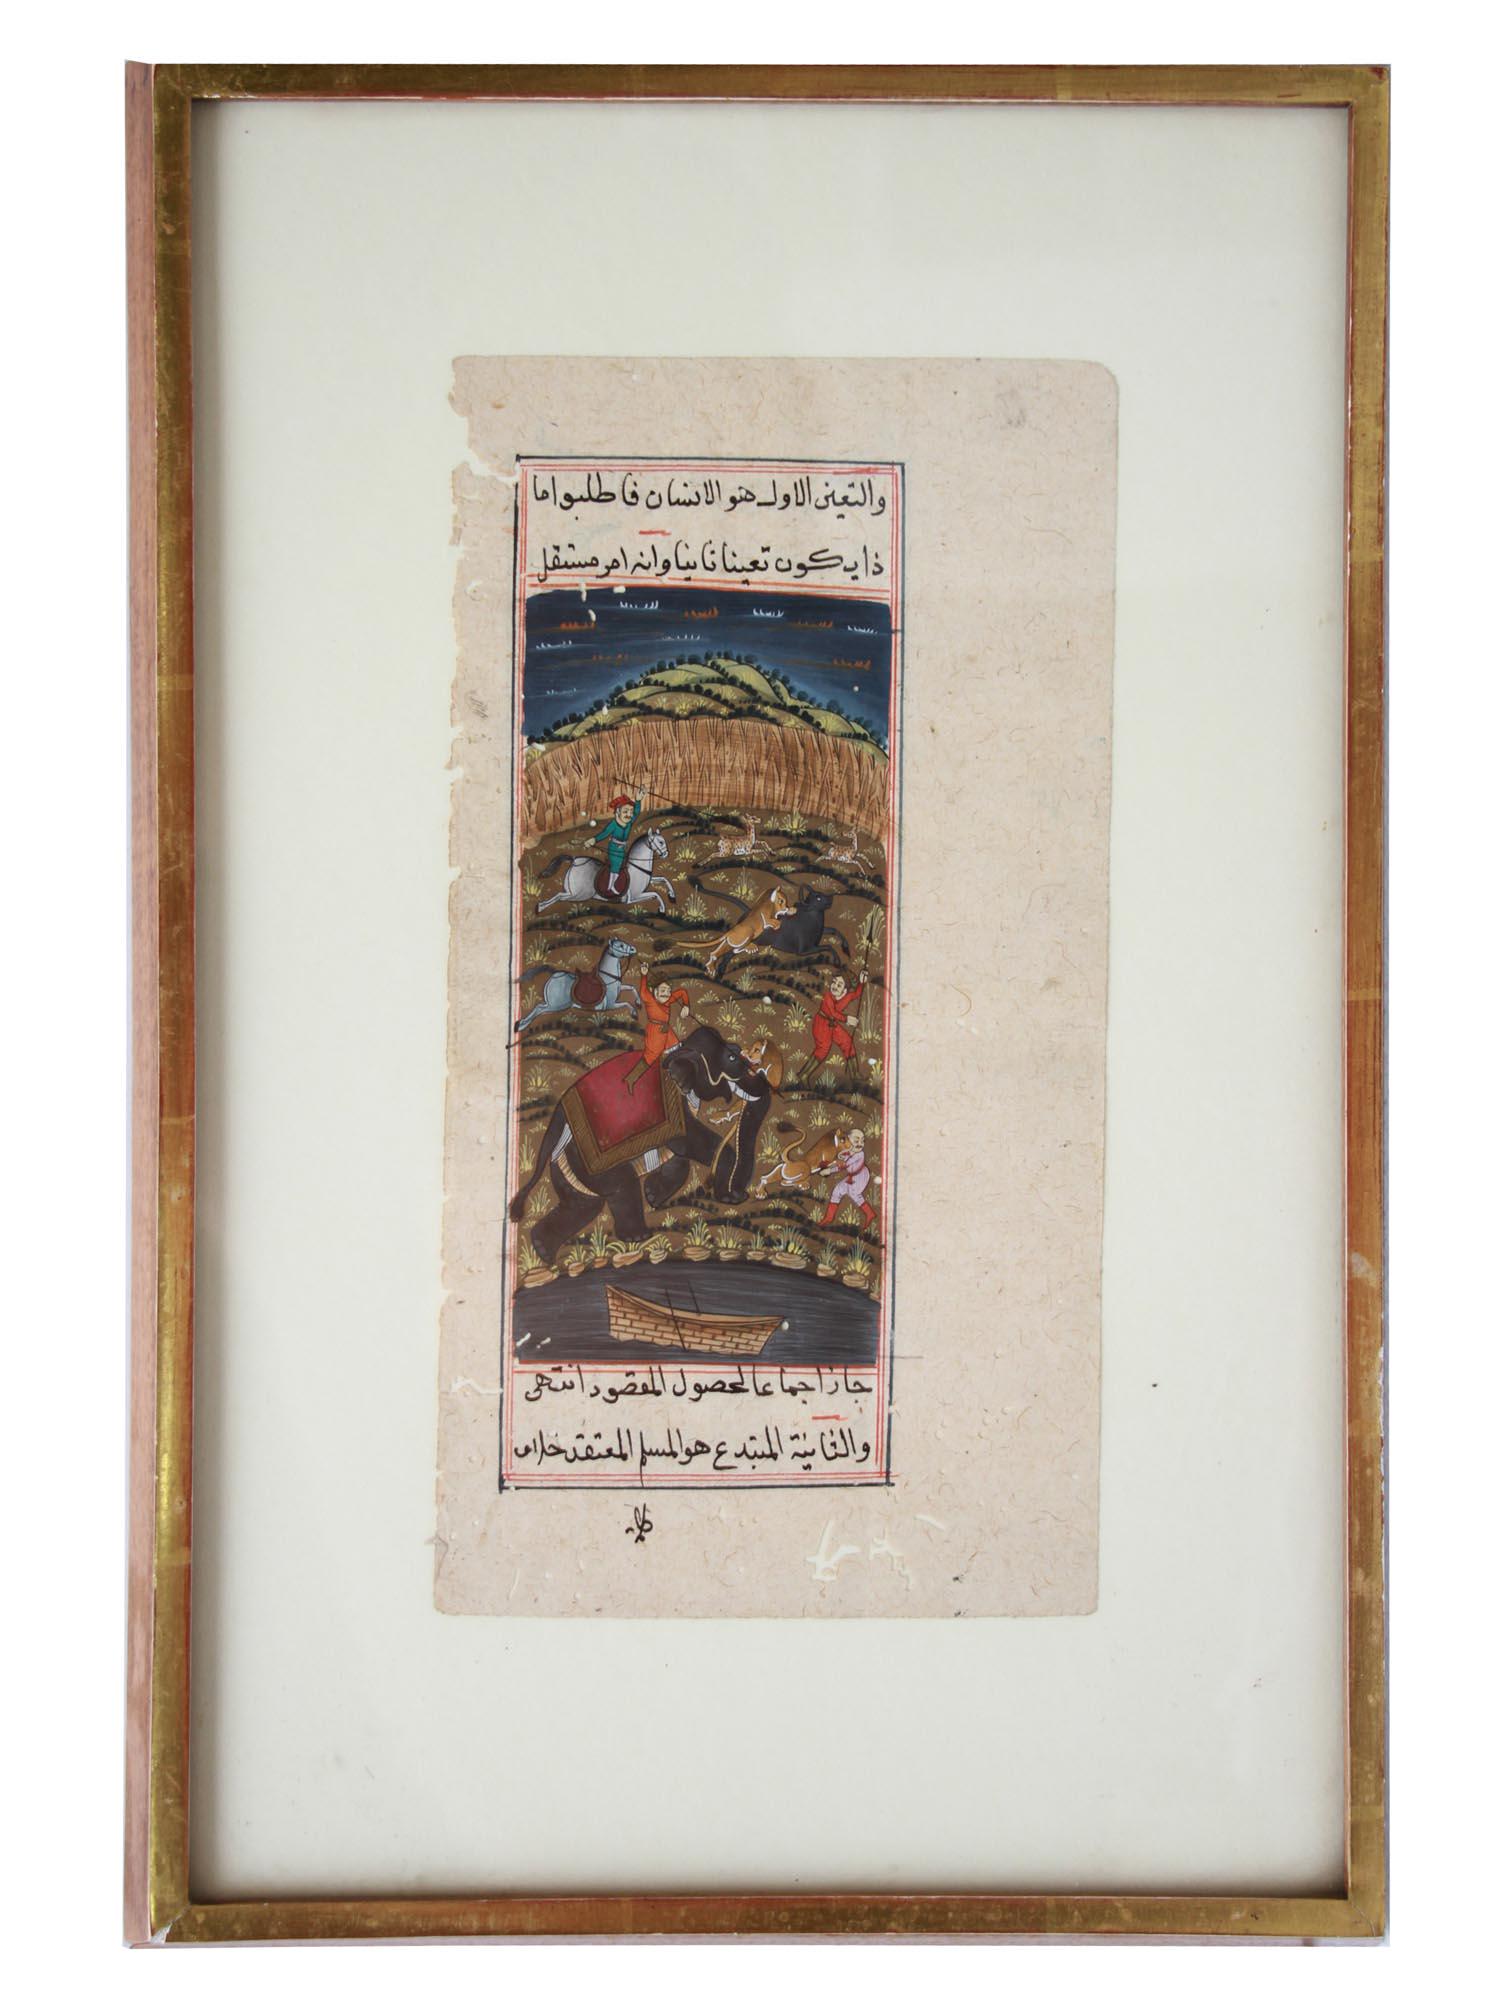 والتعين الاول هو الانسان فاطلبوا ما
ذا يكون تعينا ثانيا وانه امر مستقل
جاز اجماعا لحصول المقصود انتهى
والثانية المبتدع هو المسلم المعتقد خلاف